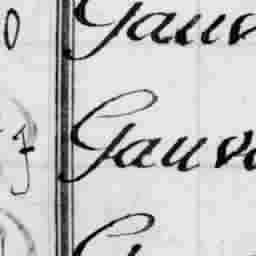 0 Gauv
7 Gauvo